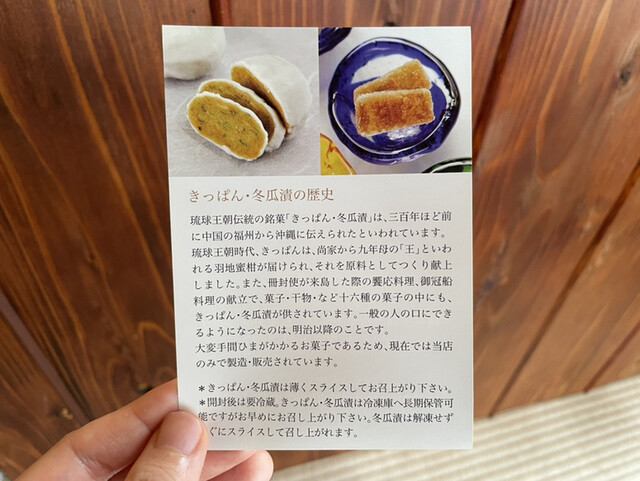 きっぱん・冬瓜漬の歴史
琉球王朝伝統の銘菓「きっぱん・冬瓜漬」は、三百年ほど前
に中国の福州から沖縄に伝えられたといわれています。
琉球王朝時代、きっぱんは、尚家から九年母の「王」といわ
れる羽地蜜柑が届けられ、それを原料としてつくり献上
しました。また、冊封使が来島した際の饗応料理、御冠船
料理の献立で、菓子・干物・など十六種の菓子の中にも、
きっぱん・冬瓜漬が供されています。一般の人の口にでき
るようになったのは、明治以降のことです。
大変手間ひまがかかるお菓子であるため、現在では当店
のみで製造・販売されています。
＊きっぱん・冬瓜漬は薄くスライスしてお召上がり下さい。
＊開封後は要冷蔵。きっぱん・冬瓜漬は冷凍庫へ長期保管可
能ですがお早めにお召し上がり下さい。冬瓜漬は解凍せず
ぐにスライスして召し上がれます。